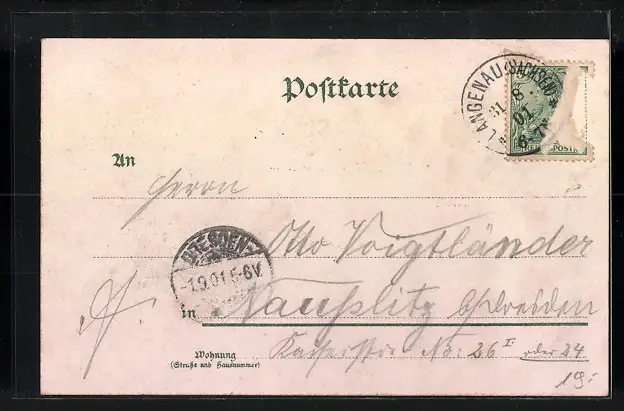 Postkarte
LANGENAU (SACHSEN)
31 8 01
REICHSPOST
An
Herrn
Otto Voigtländer
DRESDEN
1.9.01 5-6V.
in Naußlitz b/Dresden
Wohnung
(Straße und Hausnummer)
Kaiserstr. No: 26 I oder 24
19.